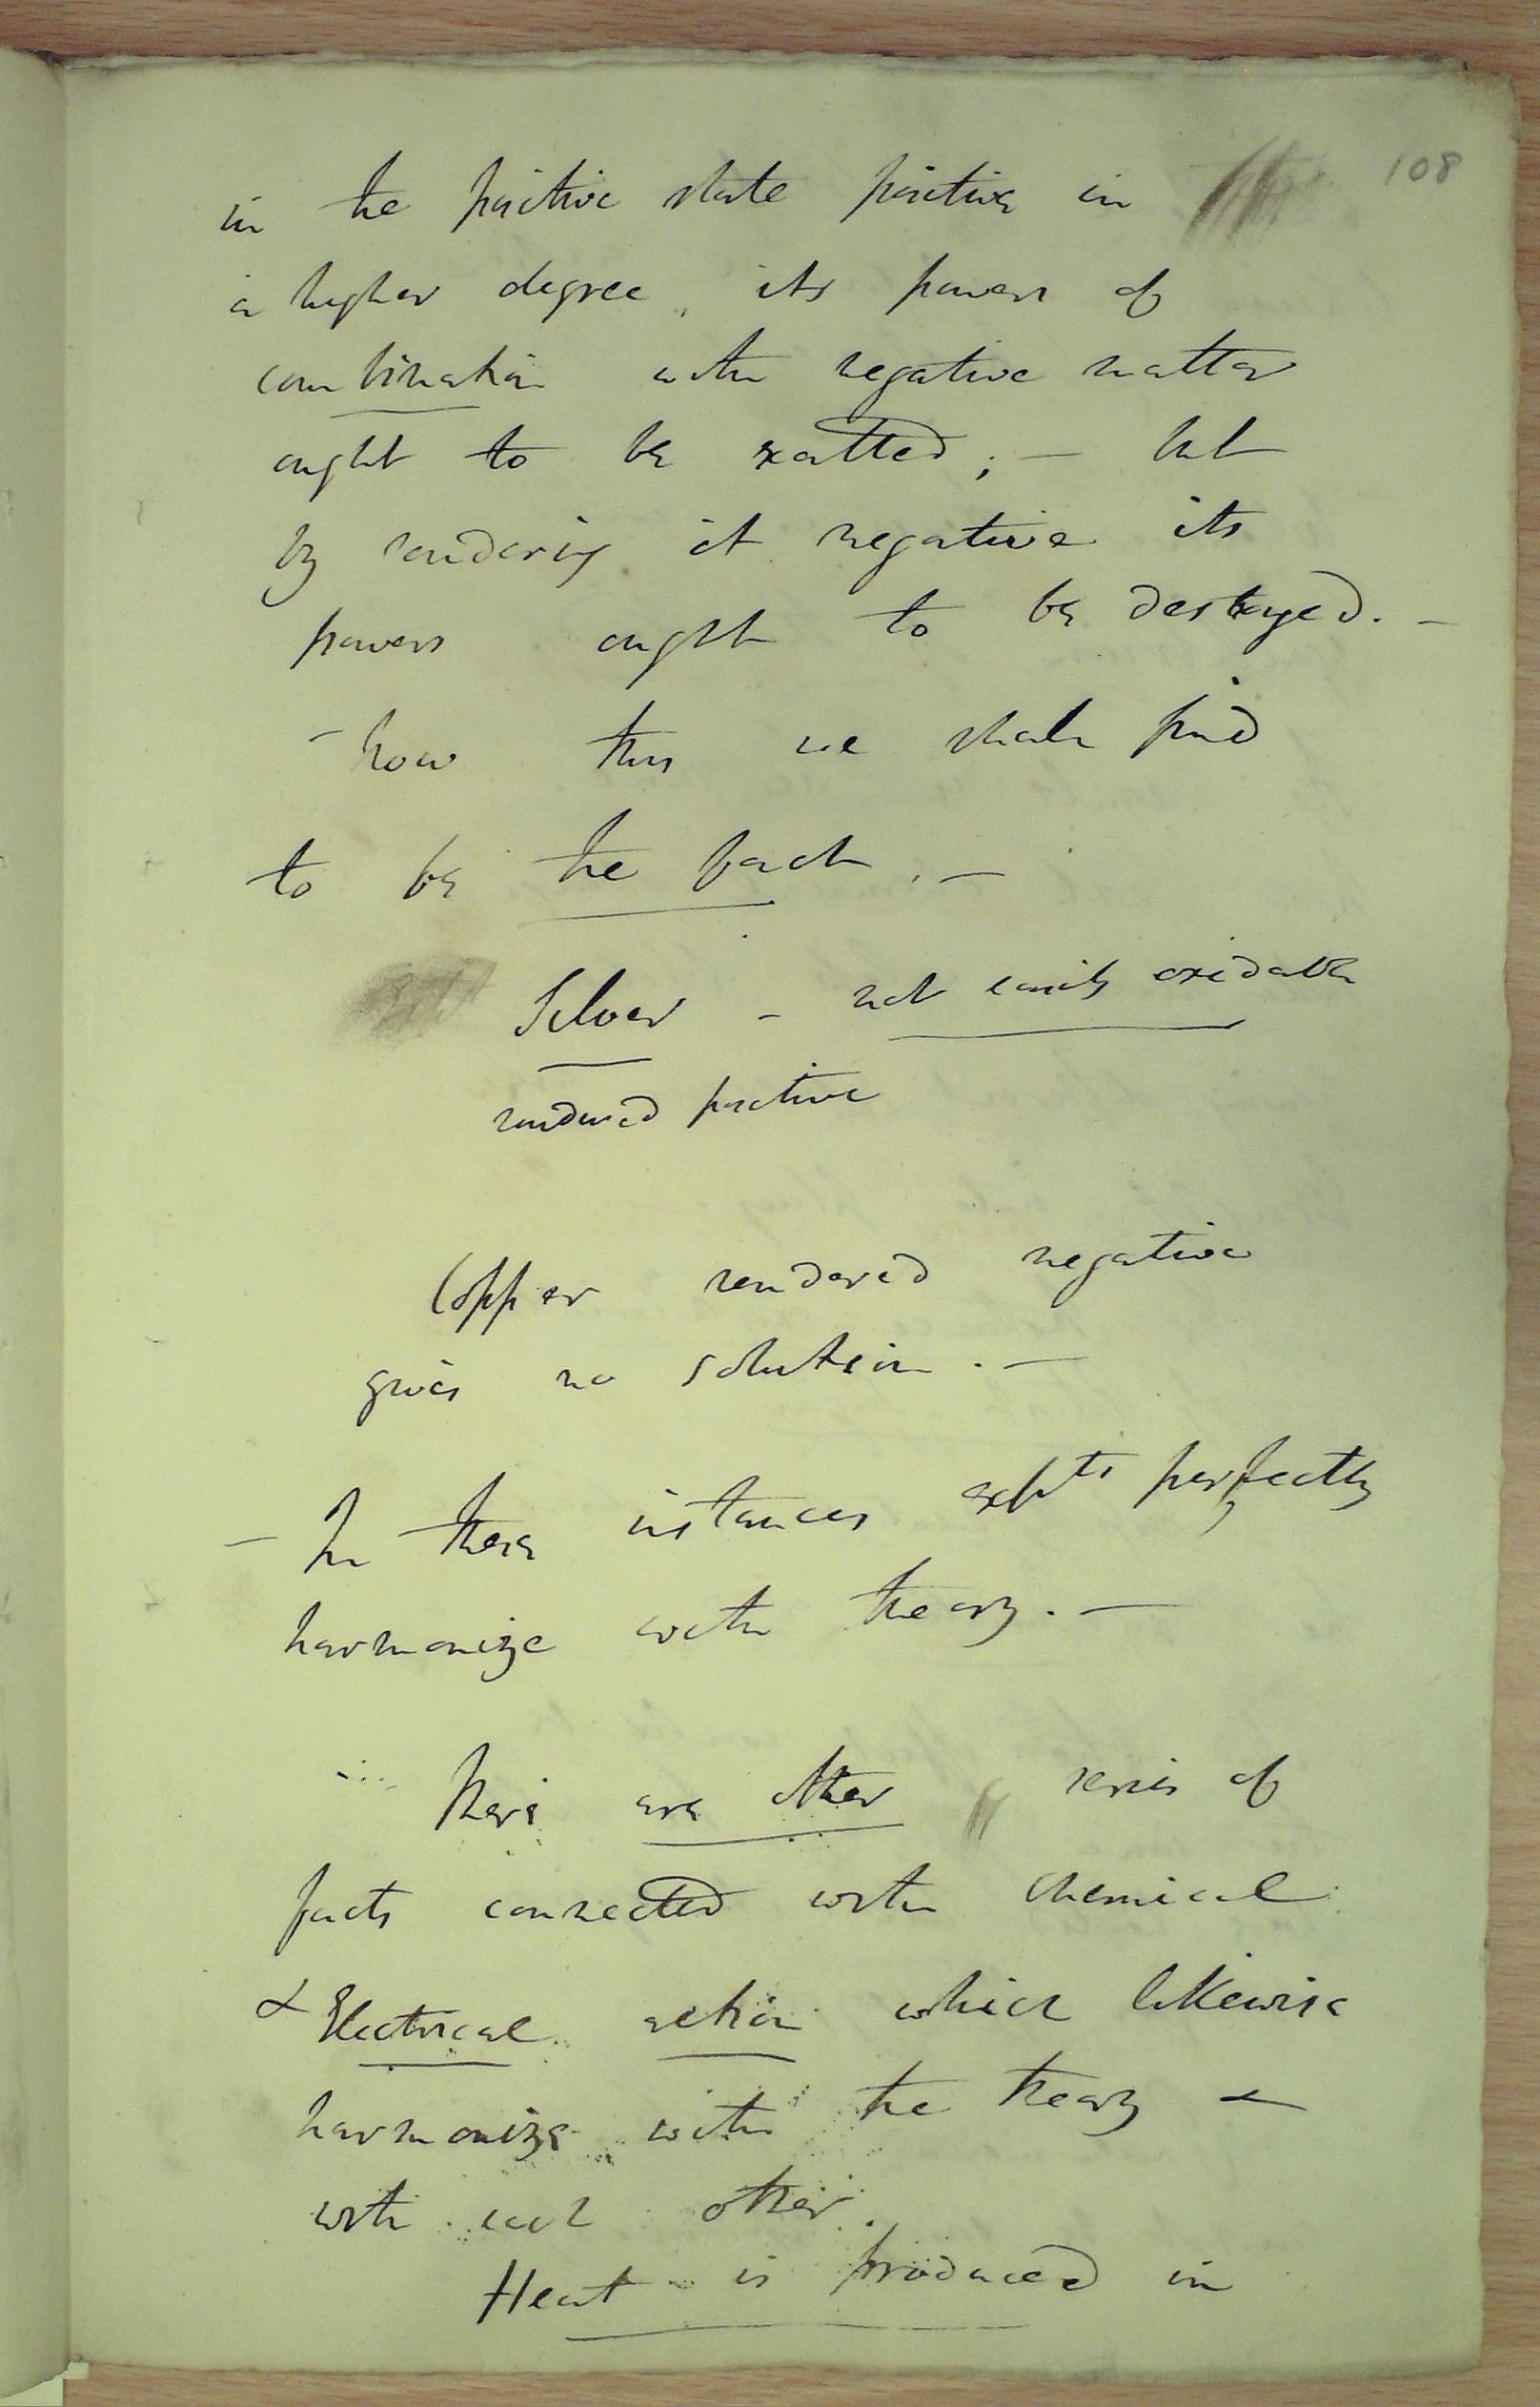 108
in the positive state positive in
a higher degree, its powers of
combination with negative matter
ought to be exalted; – but
by rendering it negative its
powers ought to be destroyed. –
– now this we shall find
to be the fact. –
Silver – not easily oxidable
rendered positive
Copper rendered negative
gives no solution. –
– In these instances expts perfectly
harmonize with theory. –
There are other series of
facts connected with chemical
& Electrical action which likewise
harmonize with the theory &
with each other.
Heat is produced in